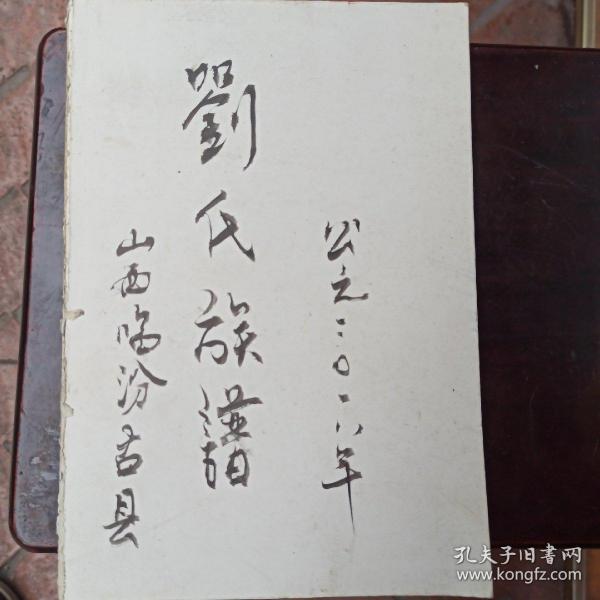 公元二〇一八年
劉氏族譜
山西临汾古县
孔夫子旧書网
www.kongfz.com